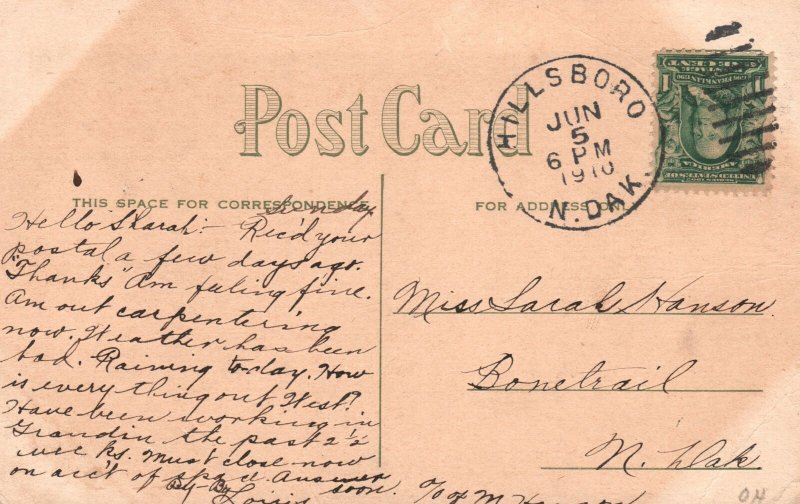 Post Card
HILLSBORO
JUN
5
6 PM
1910
N. DAK.
THIS SPACE FOR CORRESPONDENCE
FOR ADDRESS ONLY
Sunday
Hello Sharah:- Rec'd your
postal a few days ago.
"Thanks" Am feeling fine.
Am out carpentering
now. Weather has been
bad. Raining to-day. How
is everything out West?
Have been working in
Grandin the past 2 1/2
weeks. Must close now
on acc't of space. Answer
By-By soon.
Louis
Miss Sarah Hanson.
Bonetrail
N. Dak
UNITED STATES OF
AMERICA
1